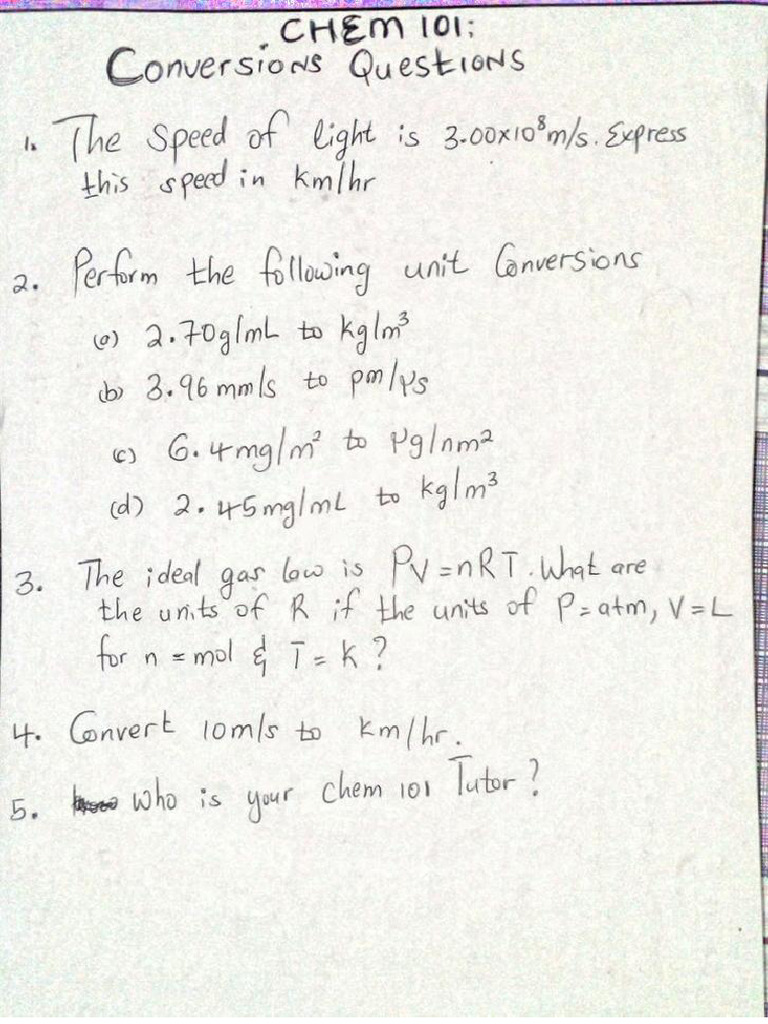 CHEM 101:
Conversions Questions
1. The speed of light is 3.00x10⁸m/s. Express
this speed in km/hr
2. Perform the following unit Conversions
(a) 2.70g/mL to kg/m³
(b) 3.96 mm/s to pm/μs
(c) 6.4mg/m² to μg/nm²
(d) 2.45mg/mL to kg/m³
3. The ideal gas law is PV=nRT. What are
the units of R if the units of P=atm, V=L
for n=mol & T=K?
4. Convert 10m/s to km/hr.
5. Who is your chem 101 Tutor?